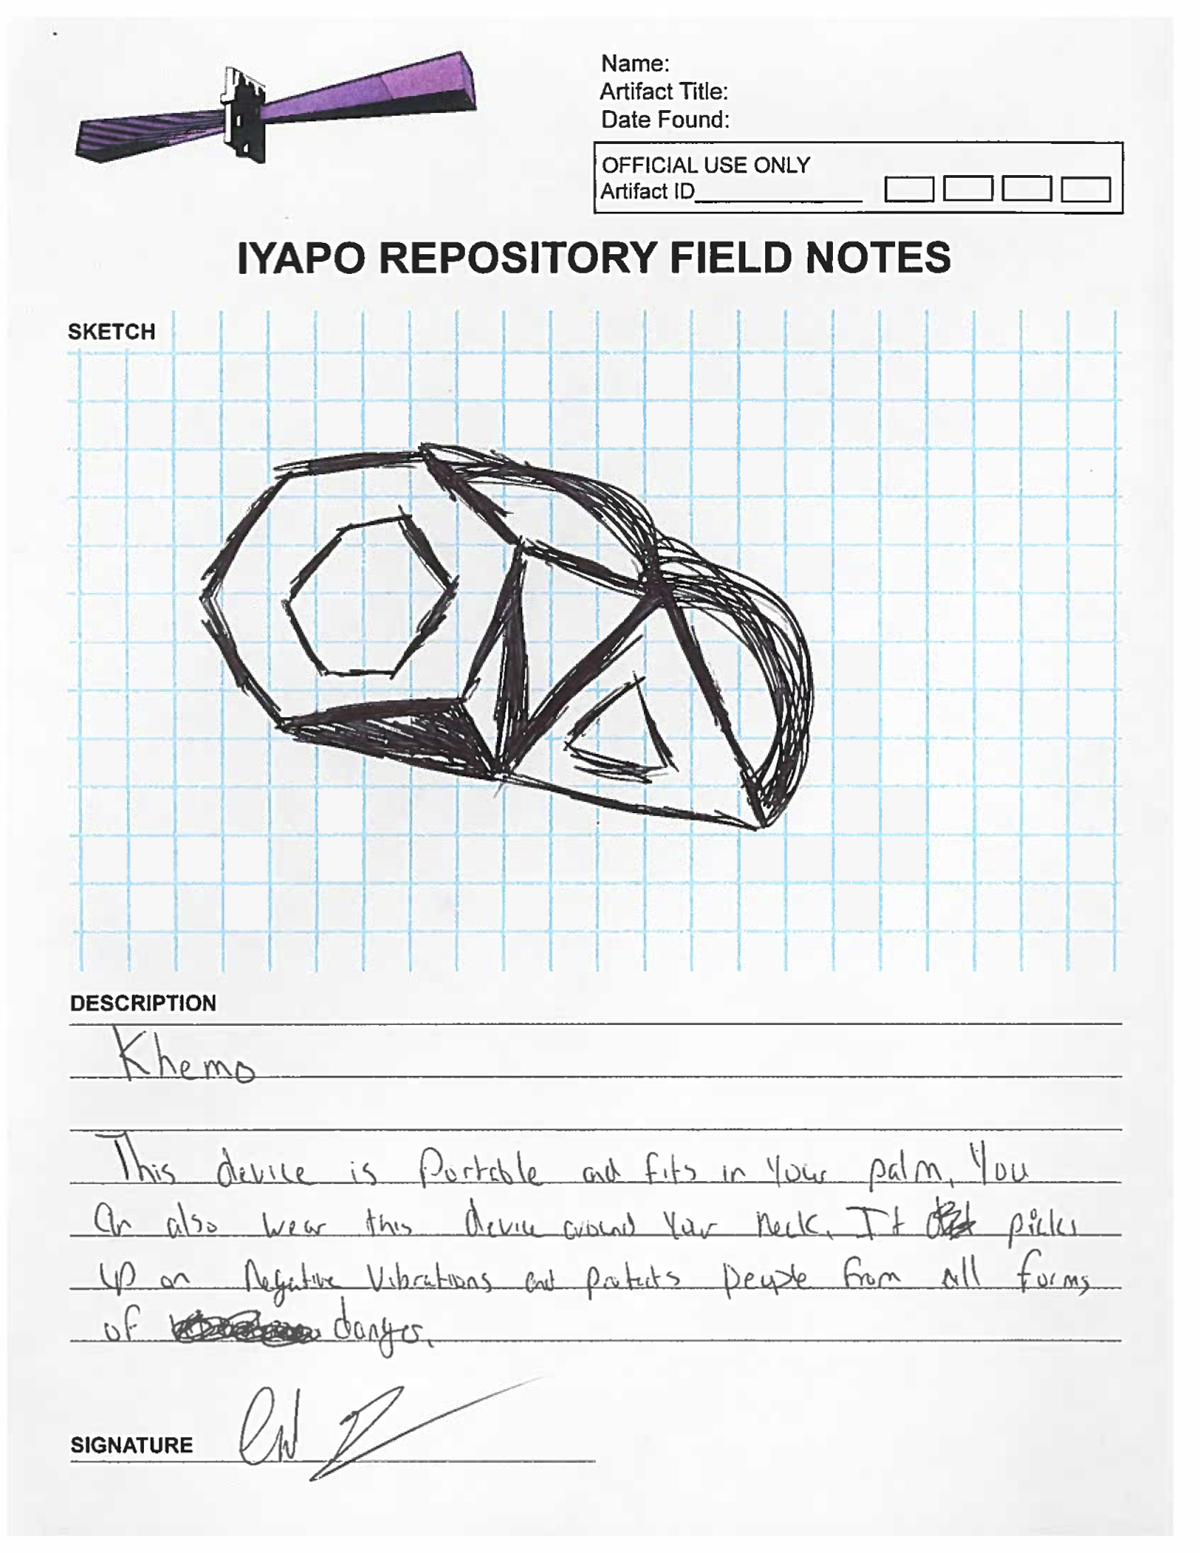 Name:
Artifact Title:
Date Found:
OFFICIAL USE ONLY
Artifact ID
IYAPO REPOSITORY FIELD NOTES
SKETCH
DESCRIPTION
Khemo
This device is Portable and fits in Your palm, You
Can also wear this device around Your neck. It picks
up on Negative Vibrations and protects people from all forms
of danger.
SIGNATURE